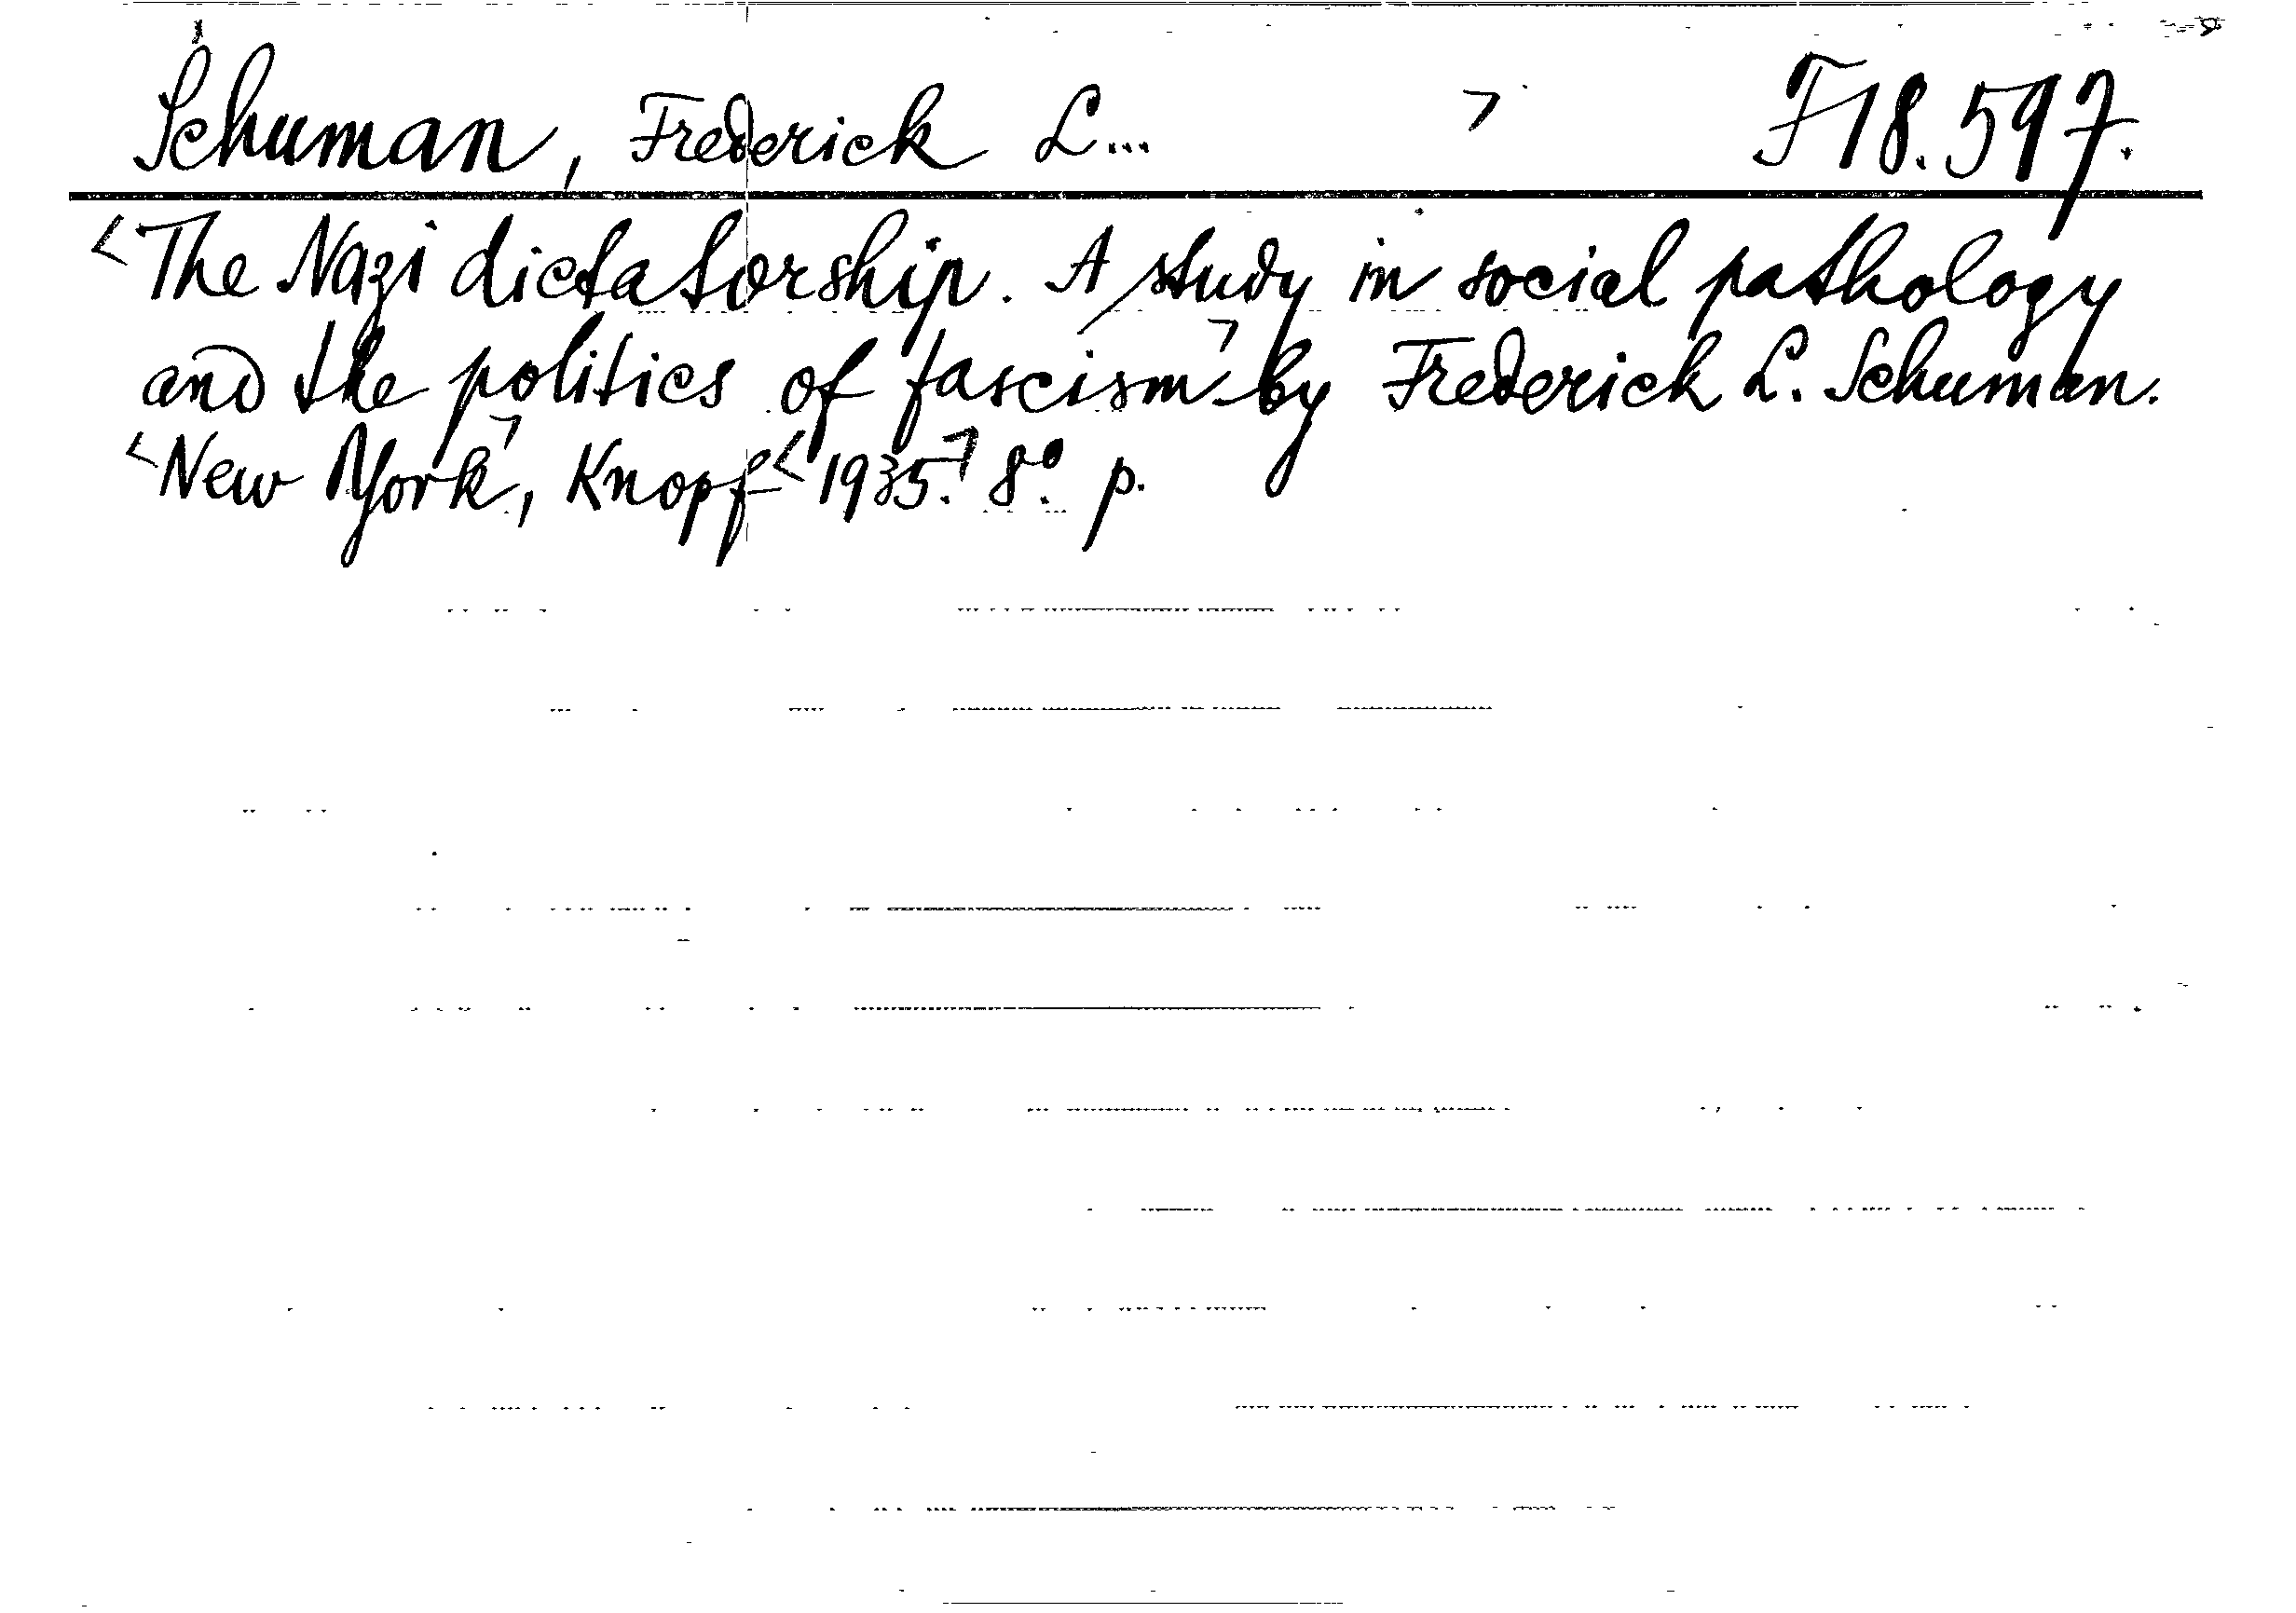 Schuman, Frederick L... > F 18.597.
<The Nazi dictatorship. A study in social pathology
and the politics of fascism> by Frederick L. Schuman.
<New York>, Knopf <1935.> 8º. p.